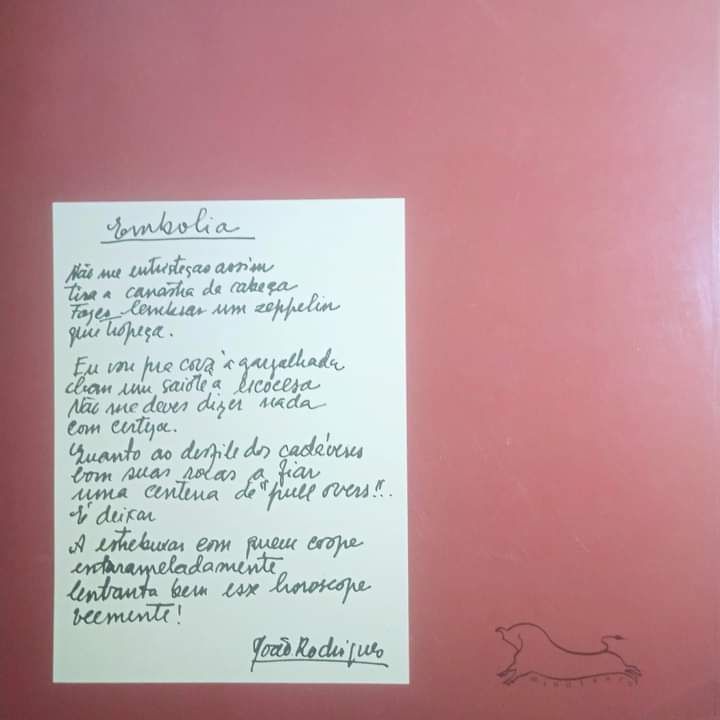 Embolia
Não me entristeças assim
tira a canastra da cabeça
Fazes lembrar um zeppelin
que tropeça.
Eu vou pra cova à gargalhada
com um saiote à escocesa
Não me deves dizer nada
com certeza.
Quanto ao desfile dos cadáveres
com suas rocas a fiar
uma centena de "pull overs"..
É deixar
A estrebuxar com quem coope
entarameladamente
lentranta bem esse horoscope
veemente!
João Rodrigues
MINOTAURO